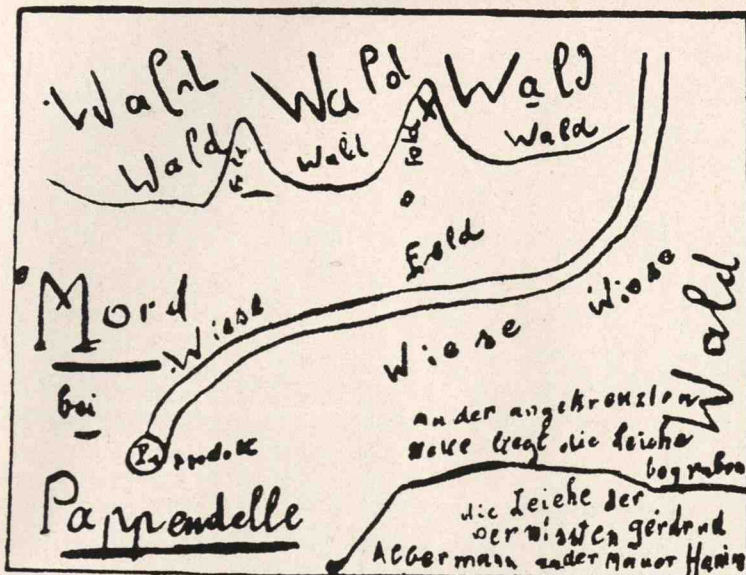 Wald Wald Wald
Wald Wald Wald
Feld
Feld
Wiese
Wiese
Wiese
Wald
Mord
bei
Pappendelle
An der angekreuzten
Stelle liegt die Leiche
begraben
die Leiche der
vermissten
Albermann an der Mauer Haniel